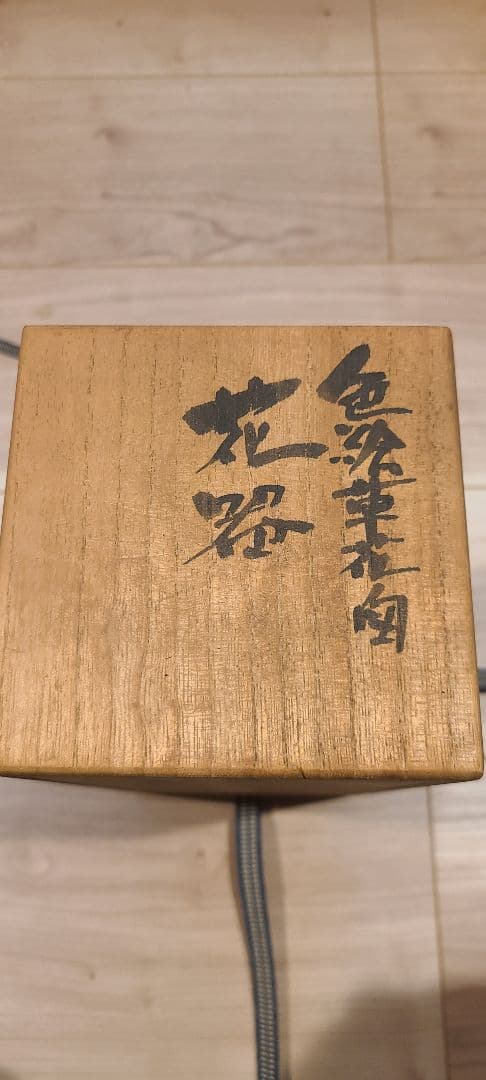 色絵草花図
花器